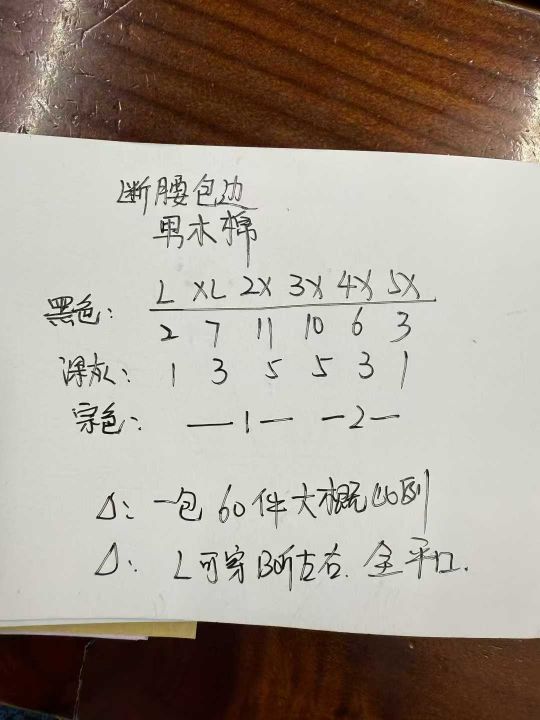 断腰包边
男木棉
L XL 2X 3X 4X 5X
黑色: 2 7 11 10 6 3
深灰: 1 3 5 5 3 1
宗色: —1— —2—
Δ: 一包60件大概比例
Δ: L可穿130斤左右. 全平口.